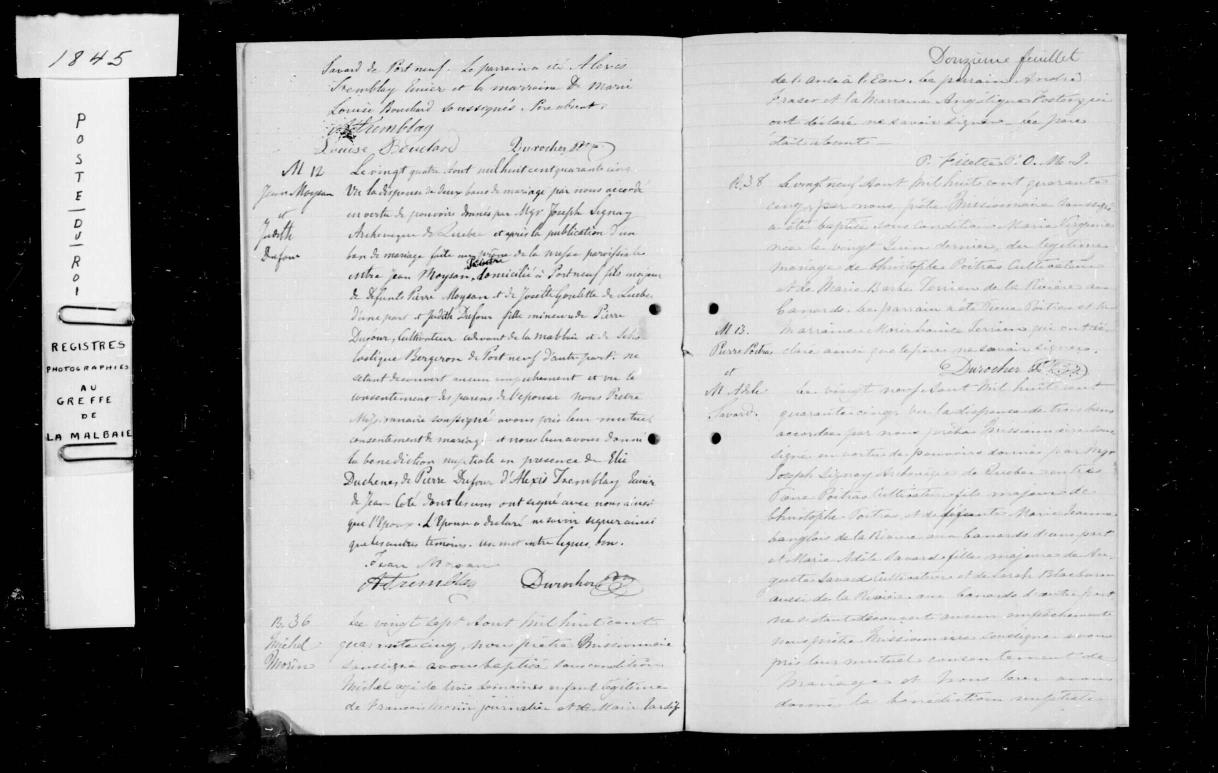 1845
POSTE DU ROI
REGISTRES
PHOTOGRAPHIES
AU
GREFFE
DE
LA MALBAIE
Savard de Portneuf. Le parrain a été Alexis
Tremblay Junier et la marraine D. Marie
Louise Bouchard soussignés. Père absent.
A Tremblay
Louise Bouchard Durocher Ptre
M 12
Jean Moysan
et
Judith
Dufour
Le vingt quatre Aout mil huit cent quarante cinq
Vu la dispense de deux bans de mariage par nous accordé
en vertu de pouvoirs donnés par Mgr Joseph Signay
Archeveque de Quebec et après la publication d'un
ban de mariage faite au prône de la messe paroissiale
entre Jean Moysan, domicilié à Portneuf fils majeur
de défunts Pierre Moysan et de Josette Goulette de Quebec
d'une part et Judith Dufour fille mineure de Pierre
Dufour, Cultivateur cidevant de la Malbaie et de Scho
lastique Bergeron de Portneuf d'autre part. ne
s'étant découvert aucun empêchement et vu le
consentement des parens de l'épouse nous Prêtre
Missionnaire soussigné avons pris leur mutuel
consentement de mariage et nous leur avons donné
la benediction nuptiale en presence de Elie
Duchene, de Pierre Dufour d'Alexis Tremblay Junier
de Jean Coté dont les uns ont signé avec nous ainsi
que l'Epoux. L'Epouse a declaré ne savoir signer ainsi
que les autres temoins. un mot entre lignes, bon.
Jean Mosan
A Tremblay Durocher Ptre
B. 36
Michel
Morin
Le vingt sept Aout mil huit cent
quarante cinq, nous prêtre Missionnaire
soussigné avons baptisé sous condition
Michel agé de trois semaines enfant légitime
de François Morin journalier et de Marie Tardif
Douzieme feuillet
de l'Anse à l'Eau. Le parrain André
Fraser et la Marraine Angélique qui
ont déclaré ne savoir signer. Le père
était absent.
P. Fiset P. O. M. I.
B. 38
Le vingt neuf Aout mil huit cent quarante
cinq, par nous prêtre Missionnaire soussigné
a été baptisé sous condition Marie Virginie
née le vingt Juin dernier, du légitime
mariage de Christophe Poitras Cultivateur
et de Marie Barbe Terrien de la Rivière aux
Canards. Le parrain a été Pierre Poitras et la
Marraine Marie Louise Terrien qui ont dé
claré ainsi que le père ne savoir signer.
Durocher Ptre
M 13.
Pierre Poitras
et
M. Adele
Savard.
Le vingt neuf Aout mil huit cent
quarante cinq, vu la dispense de trois bans
accordée par nous prêtre Missionnaire sous
signé en vertu de pouvoirs donnés par Mgr
Joseph Signay Archeveque de Quebec entre
Pierre Poitras Cultivateur fils majeur de
Christophe Poitras et de défunte Marie Jeanne
Langlois de la Rivière aux Canards d'une part
et Marie Adèle Savard fille majeure de Au
guste Savard Cultivateur et de Sarah Blackburn
aussi de la Rivière aux Canards d'autre part
ne s'étant découvert aucun empêchement
nous prêtre Missionnaire soussigné avons
pris leur mutuel consentement de
Mariage et nous leur avons
donné la bénédiction nuptiale